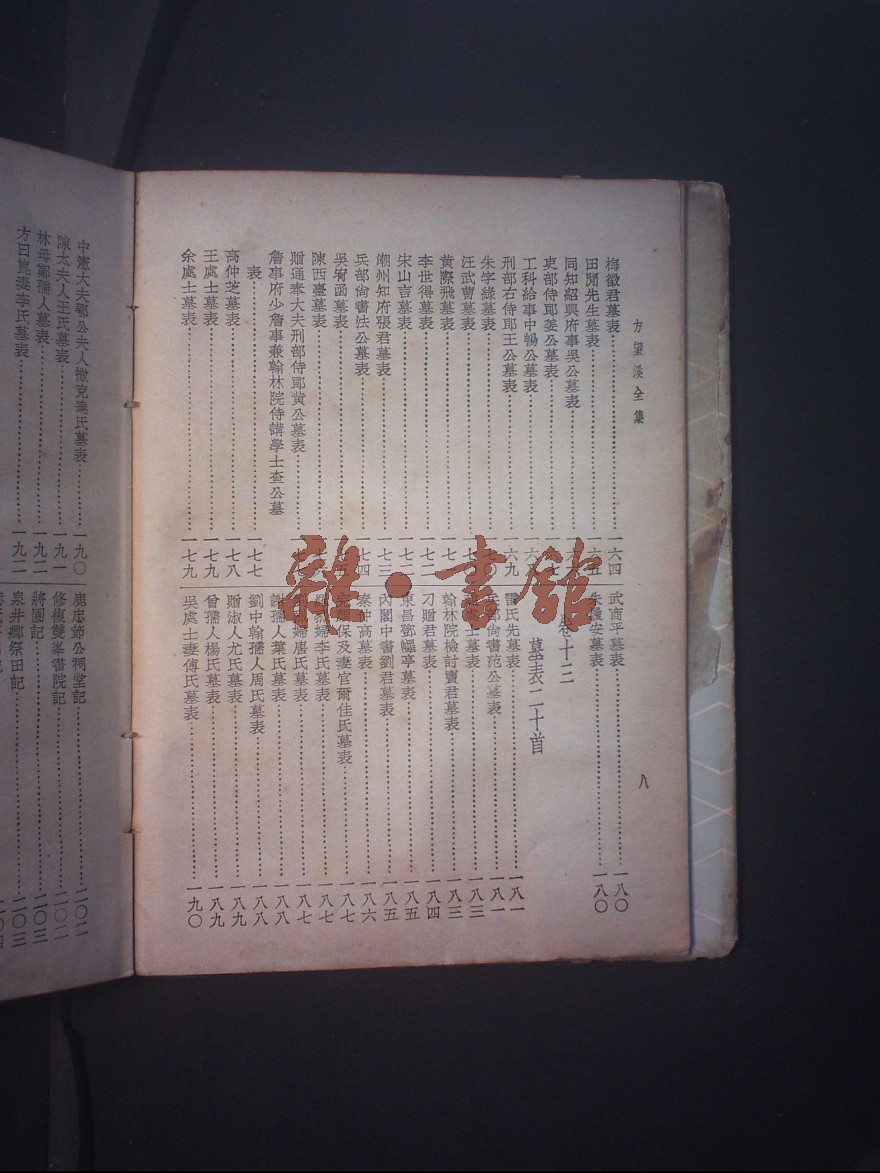 方望溪全集
八
梅徵君墓表一六四
田閒先生墓表一六五
同知紹興府事吳公墓表
吏部侍郎姜公墓表
工科給事中暢公墓表
刑部右侍郎王公墓表六九
朱字綠墓表
汪武曹墓表
黃際飛墓表
李世得墓表一七二
宋山言墓表一七二
潮州知府張君墓表一七三
兵部尚書法公墓表
吳宥函墓表
陳西臺墓表
贈通奉大夫刑部侍郎黃公墓表
詹事府少詹事兼翰林院侍講學士查公墓
表一七七
高仲芝墓表一七八
王處士墓表一七九
余處士墓表一七九
武商平墓表一八〇
朱履安墓表一八〇
卷十三
墓表二十首
雷氏先墓表一八一
兵部尚書范公墓表一八一
處士墓表一八三
翰林院檢討竇君墓表一八三
刁贈君墓表一八四
東昌鄧嶧亭墓表一八五
內閣中書劉君墓表一八五
秦仲高墓表一八六
保及妻官爾佳氏墓表一八七
婦李氏墓表一八七
婦唐氏墓表一八七
謝孺人葉氏墓表一八八
劉中翰孺人周氏墓表一八八
贈淑人尤氏墓表一八九
曾孺人楊氏墓表一八九
吳處士妻傅氏墓表一九〇
中憲大夫鄂公夫人撒克達氏墓表一九〇
陳太夫人王氏墓表一九一
林母鄭孺人墓表一九二
方曰崑妻李氏墓表一九二
鹿忠節公祠堂記二〇二
修復雙峯書院記二〇二
將園記二〇三
泉井鄉祭田記二〇三
雜·書館